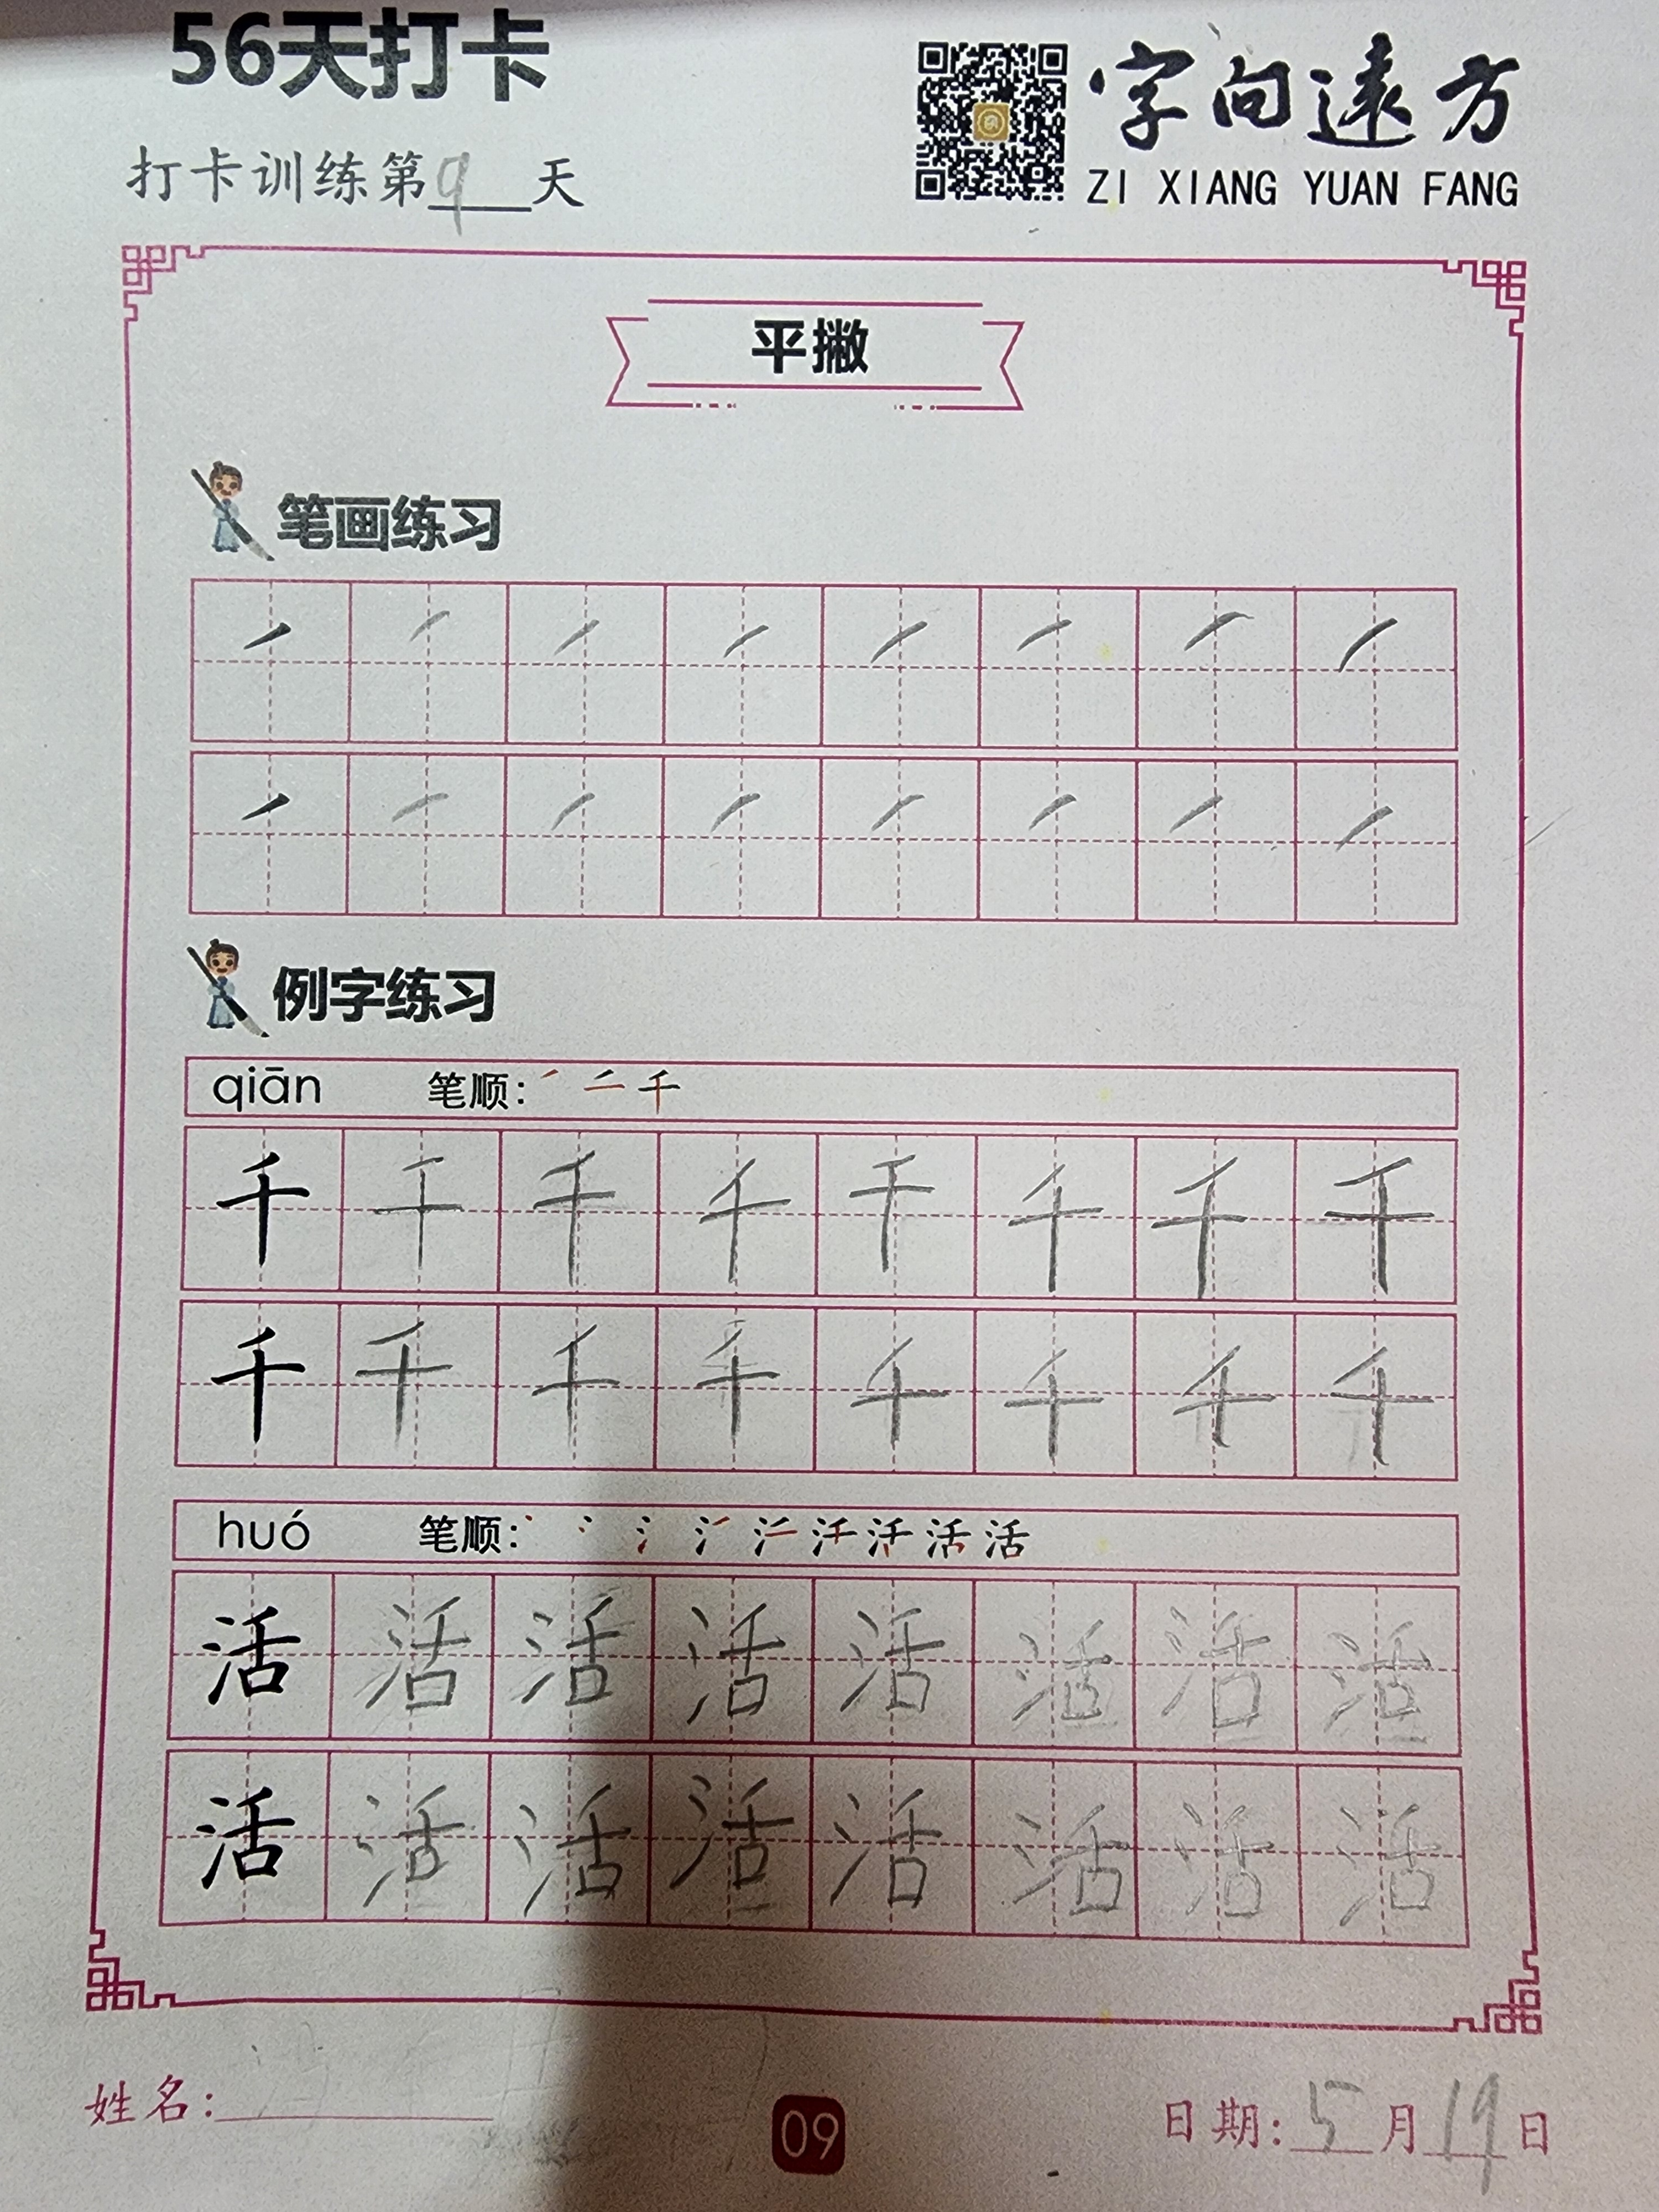 56天打卡
字向遠方
打卡训练第9天
ZI XIANG YUAN FANG
平撇
笔画练习
㇒ ㇒ ㇒ ㇒ ㇒ ㇒ ㇒ ㇒
㇒ ㇒ ㇒ ㇒ ㇒ ㇒ ㇒ ㇒
例字练习
qiān 笔顺: ㇒ 二 千
千 千 千 千 千 千 千 千
千 千 千 千 千 千 千 千
huó 笔顺: 活
活 活 活 活 活 活 活 活
活 活 活 活 活 活 活 活
姓名:
09
日期: 5月19日